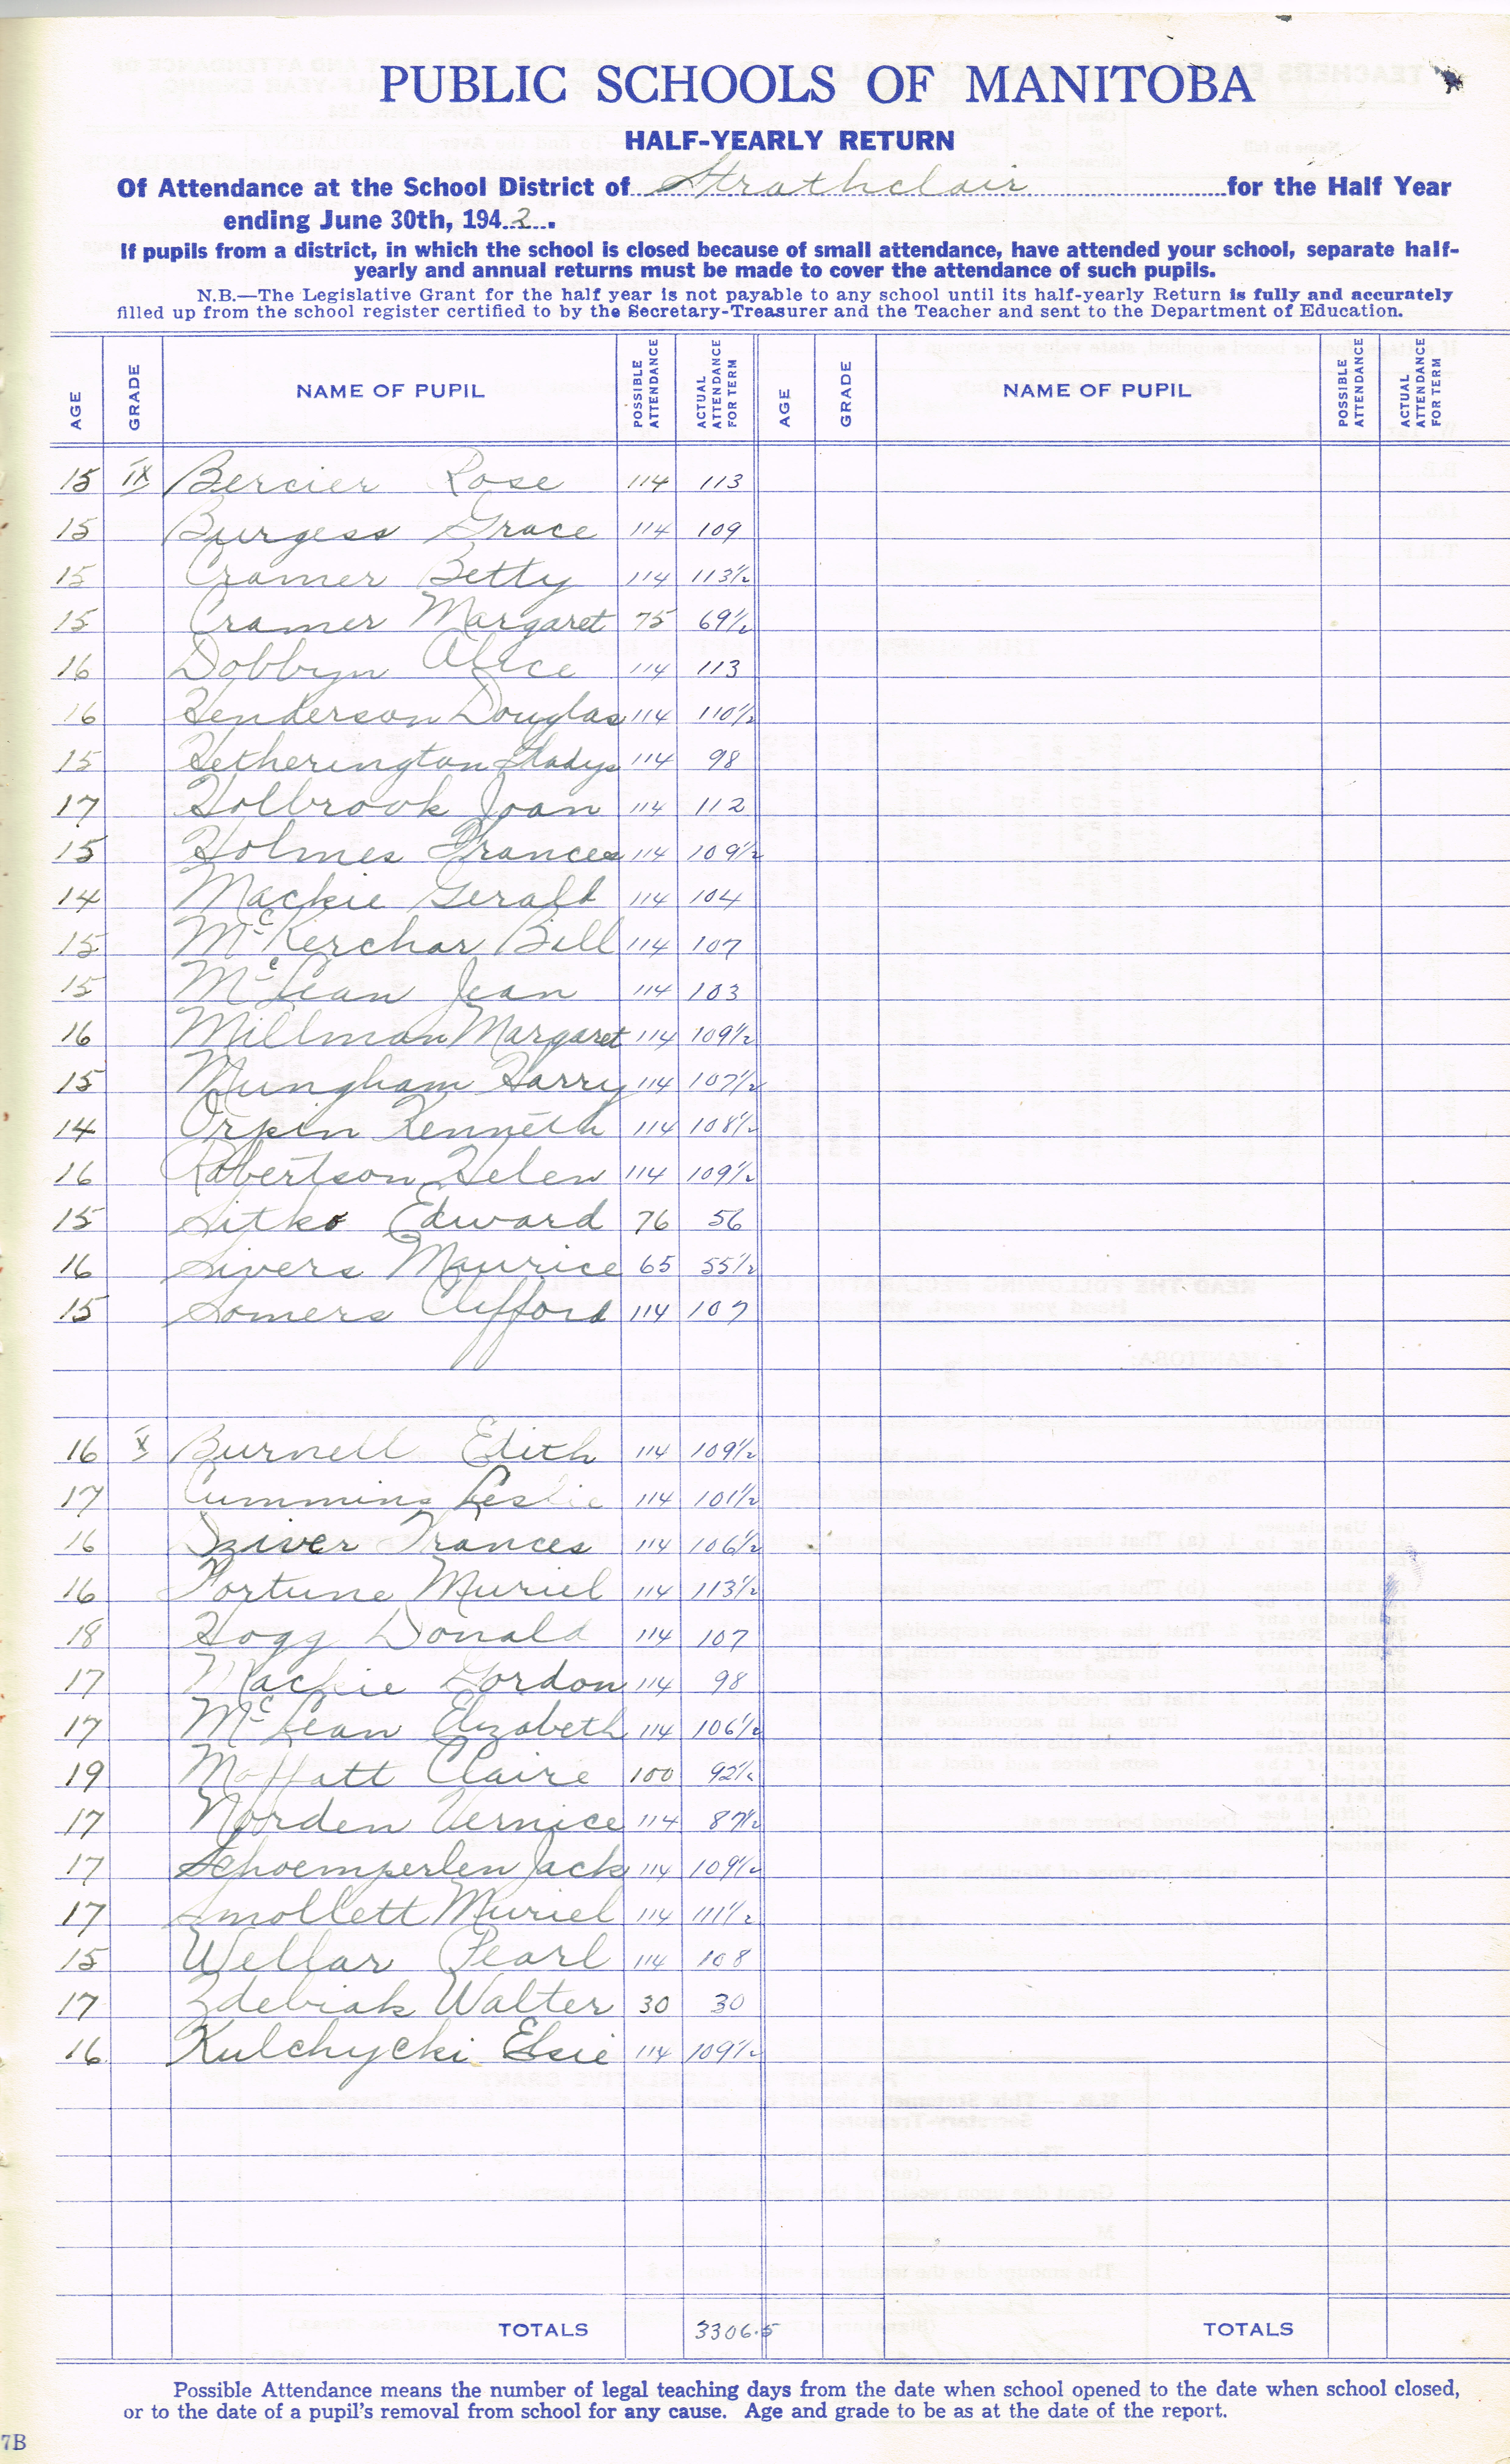 PUBLIC SCHOOLS OF MANITOBA
HALF-YEARLY RETURN
Of Attendance at the School District of Strathclair for the Half Year
ending June 30th, 1942.
If pupils from a district, in which the school is closed because of small attendance, have attended your school, separate half-
yearly and annual returns must be made to cover the attendance of such pupils.
N.B.—The Legislative Grant for the half year is not payable to any school until its half-yearly Return is fully and accurately
filled up from the school register certified to by the Secretary-Treasurer and the Teacher and sent to the Department of Education.
AGE GRADE NAME OF PUPIL POSSIBLE ATTENDANCE ACTUAL ATTENDANCE FOR TERM AGE GRADE NAME OF PUPIL POSSIBLE ATTENDANCE ACTUAL ATTENDANCE FOR TERM
15 IX Bercier Rose 114 113
15 Burgess Grace 114 109
15 Cramer Betty 114 113½
15 Cramer Margaret 75 69½
16 Dobbyn Alice 114 113
16 Henderson Douglas 114 110½
15 Hetherington Gladys 114 98
17 Holbrook Joan 114 112
15 Holmes Frances 114 109½
14 Mackie Gerald 114 104
15 McKerchar Bill 114 107
15 McLean Jean 114 103
16 Millman Margaret 114 109½
15 Mungham Harry 114 107½
14 Orpin Kenneth 114 108½
16 Robertson Helen 114 109½
15 Sitko Edward 76 56
16 Sivers Maurice 65 55½
15 Somers Clifford 114 107
16 X Burnell Edith 114 109½
17 Cummins Leslie 114 101½
16 Dziver Frances 114 106½
16 Fortune Muriel 114 113½
18 Hogg Donald 114 107
17 Mackie Gordon 114 98
17 McLean Elizabeth 114 106½
19 Moffatt Claire 100 92½
17 Norden Vernice 114 87½
17 Schoemperlen Jack 114 109½
17 Smollett Muriel 114 111½
15 Wellar Pearl 114 108
17 Zdebiak Walter 30 30
16 Kulchycki Elsie 114 109½
TOTALS 3306.5 TOTALS
Possible Attendance means the number of legal teaching days from the date when school opened to the date when school closed,
or to the date of a pupil's removal from school for any cause. Age and grade to be as at the date of the report.
7B